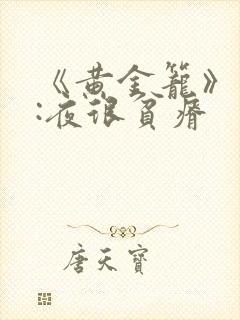 《黄金籠》
:夜很負瘠
唐天寶